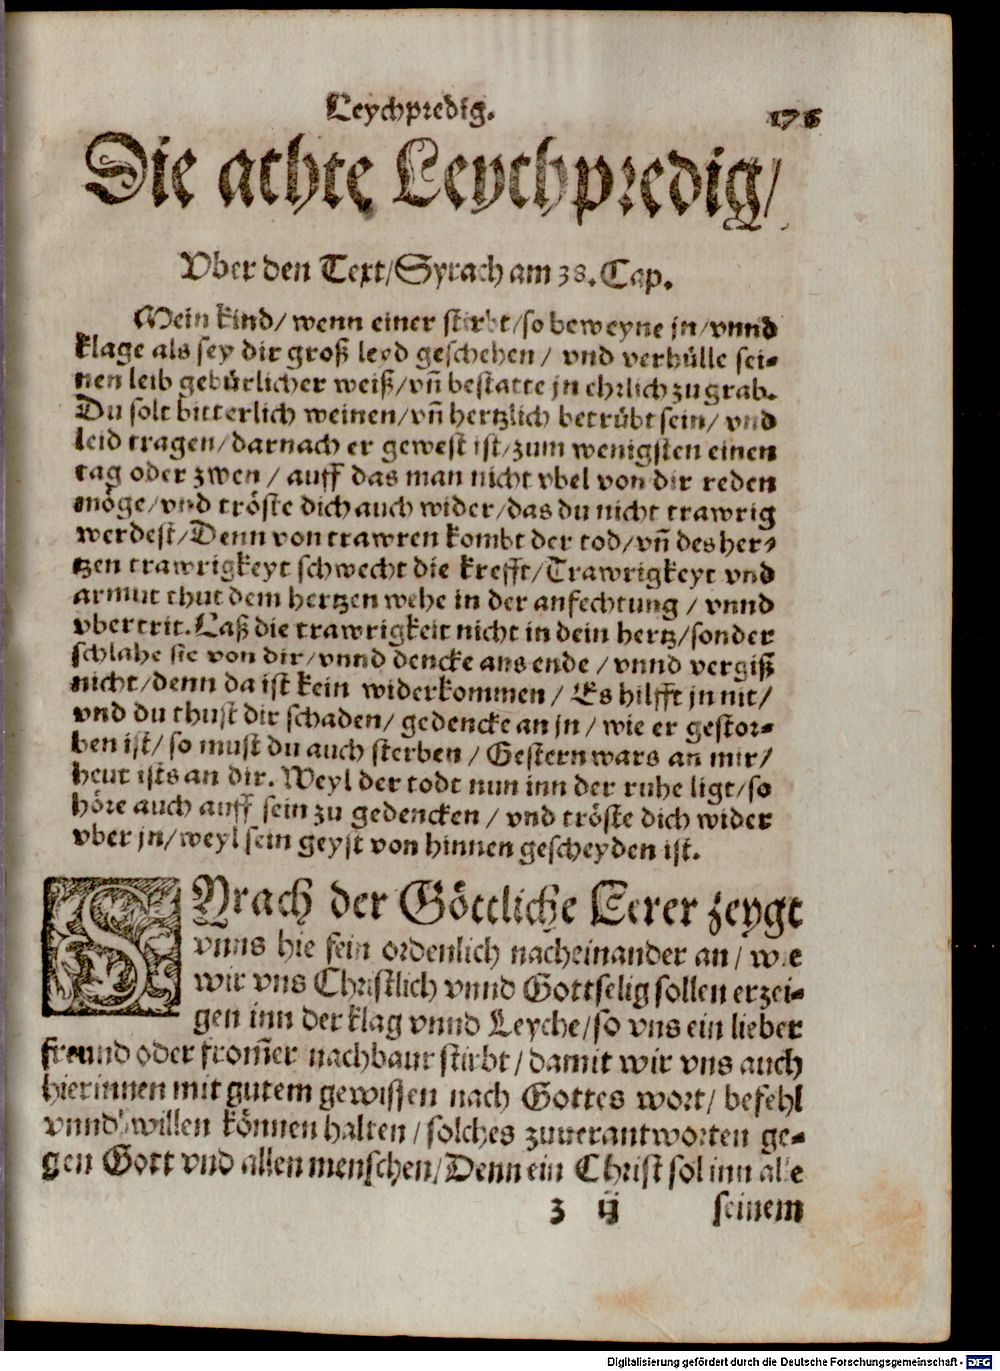 Leychpredig. 176
Die achte Leychpredig/
Vber den Text/Syrach am 38. Cap.
Mein kind/ wenn einer stirbt/so beweyne jn/vnnd
klage als sey dir groß leyd geschehen/ vnd verhülle sei-
nen leib gebürlicher weiß/vn̄ bestatte jn ehrlich zu grab.
Du solt bitterlich weinen/vn̄ hertzlich betrübt sein/ vnd
leid tragen/darnach er gewest ist/zum wenigsten einen
tag oder zwen/ auff das man nicht vbel von dir reden
möge/vnd tröste dich auch wider/das du nicht trawrig
werdest/Denn von trawren kombt der tod/vn̄ des her-
tzen trawrigkeyt schwecht die krefft/Trawrigkeyt vnd
armut thut dem hertzen wehe in der anfechtung/ vnnd
vbertrit. Laß die trawrigkeit nicht in dein hertz/sonder
schlahe sie von dir/vnnd dencke ans ende/vnnd vergiß
nicht/denn da ist kein widerkommen/ Es hilfft jn nit/
vnd du thust dir schaden/ gedencke an jn/ wie er gestor-
ben ist/ so must du auch sterben/ Gestern wars an mir/
heut ists an dir. Weyl der todt nun inn der ruhe ligt/so
höre auch auff sein zu gedencken/ vnd tröste dich wider
vber jn/weyl sein geyst von hinnen gescheyden ist.
SYrach der Göttliche Lerer zeygt
vnns hie fein ordenlich nacheinander an/ wie
wir vns Christlich vnnd Gottselig sollen erzei-
gen inn der klag vnnd Leyche/so vns ein lieber
freund oder from̄er nachbaur stirbt/damit wir vns auch
hierinnen mit gutem gewissen nach Gottes wort/ befehl
vnnd willen können halten/solches zuuerantworten ge-
gen Gott vnd allen menschen/Denn ein Christ sol inn alle
z ij seinem
Digitalisierung gefördert durch die Deutsche Forschungsgemeinschaft - DFG